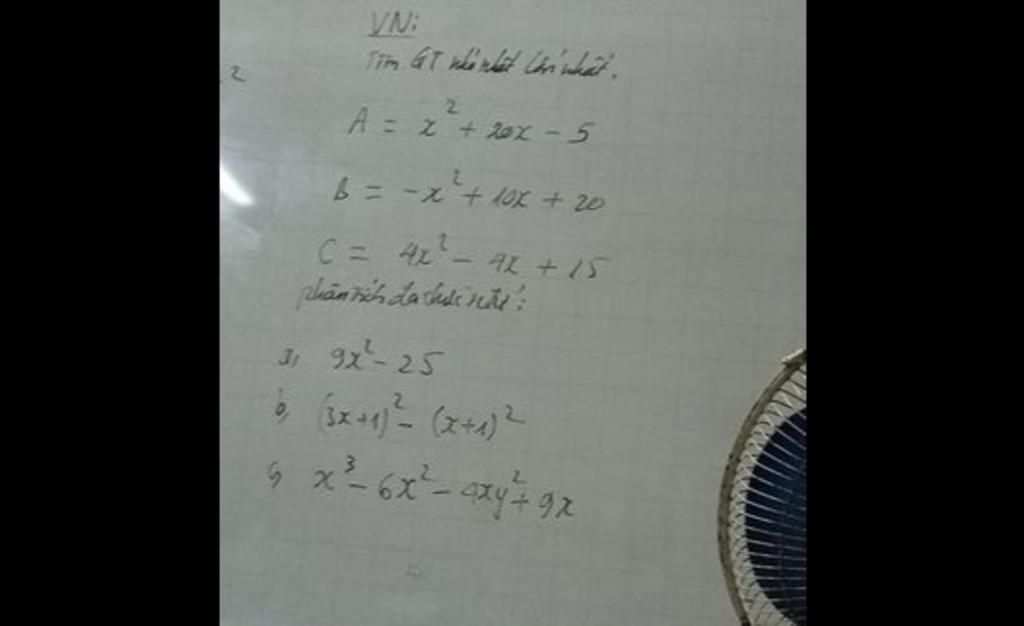 VN:
Tìm GT nhỏ nhất lớn nhất.
2
A = x² + 20x - 5
B = -x² + 10x + 20
C = 4x² - 4x + 15
phân tích đa thức nttử:
a, 9x² - 25
b, (3x+1)² - (x+1)²
c, x³ - 6x² - 4xy² + 9x